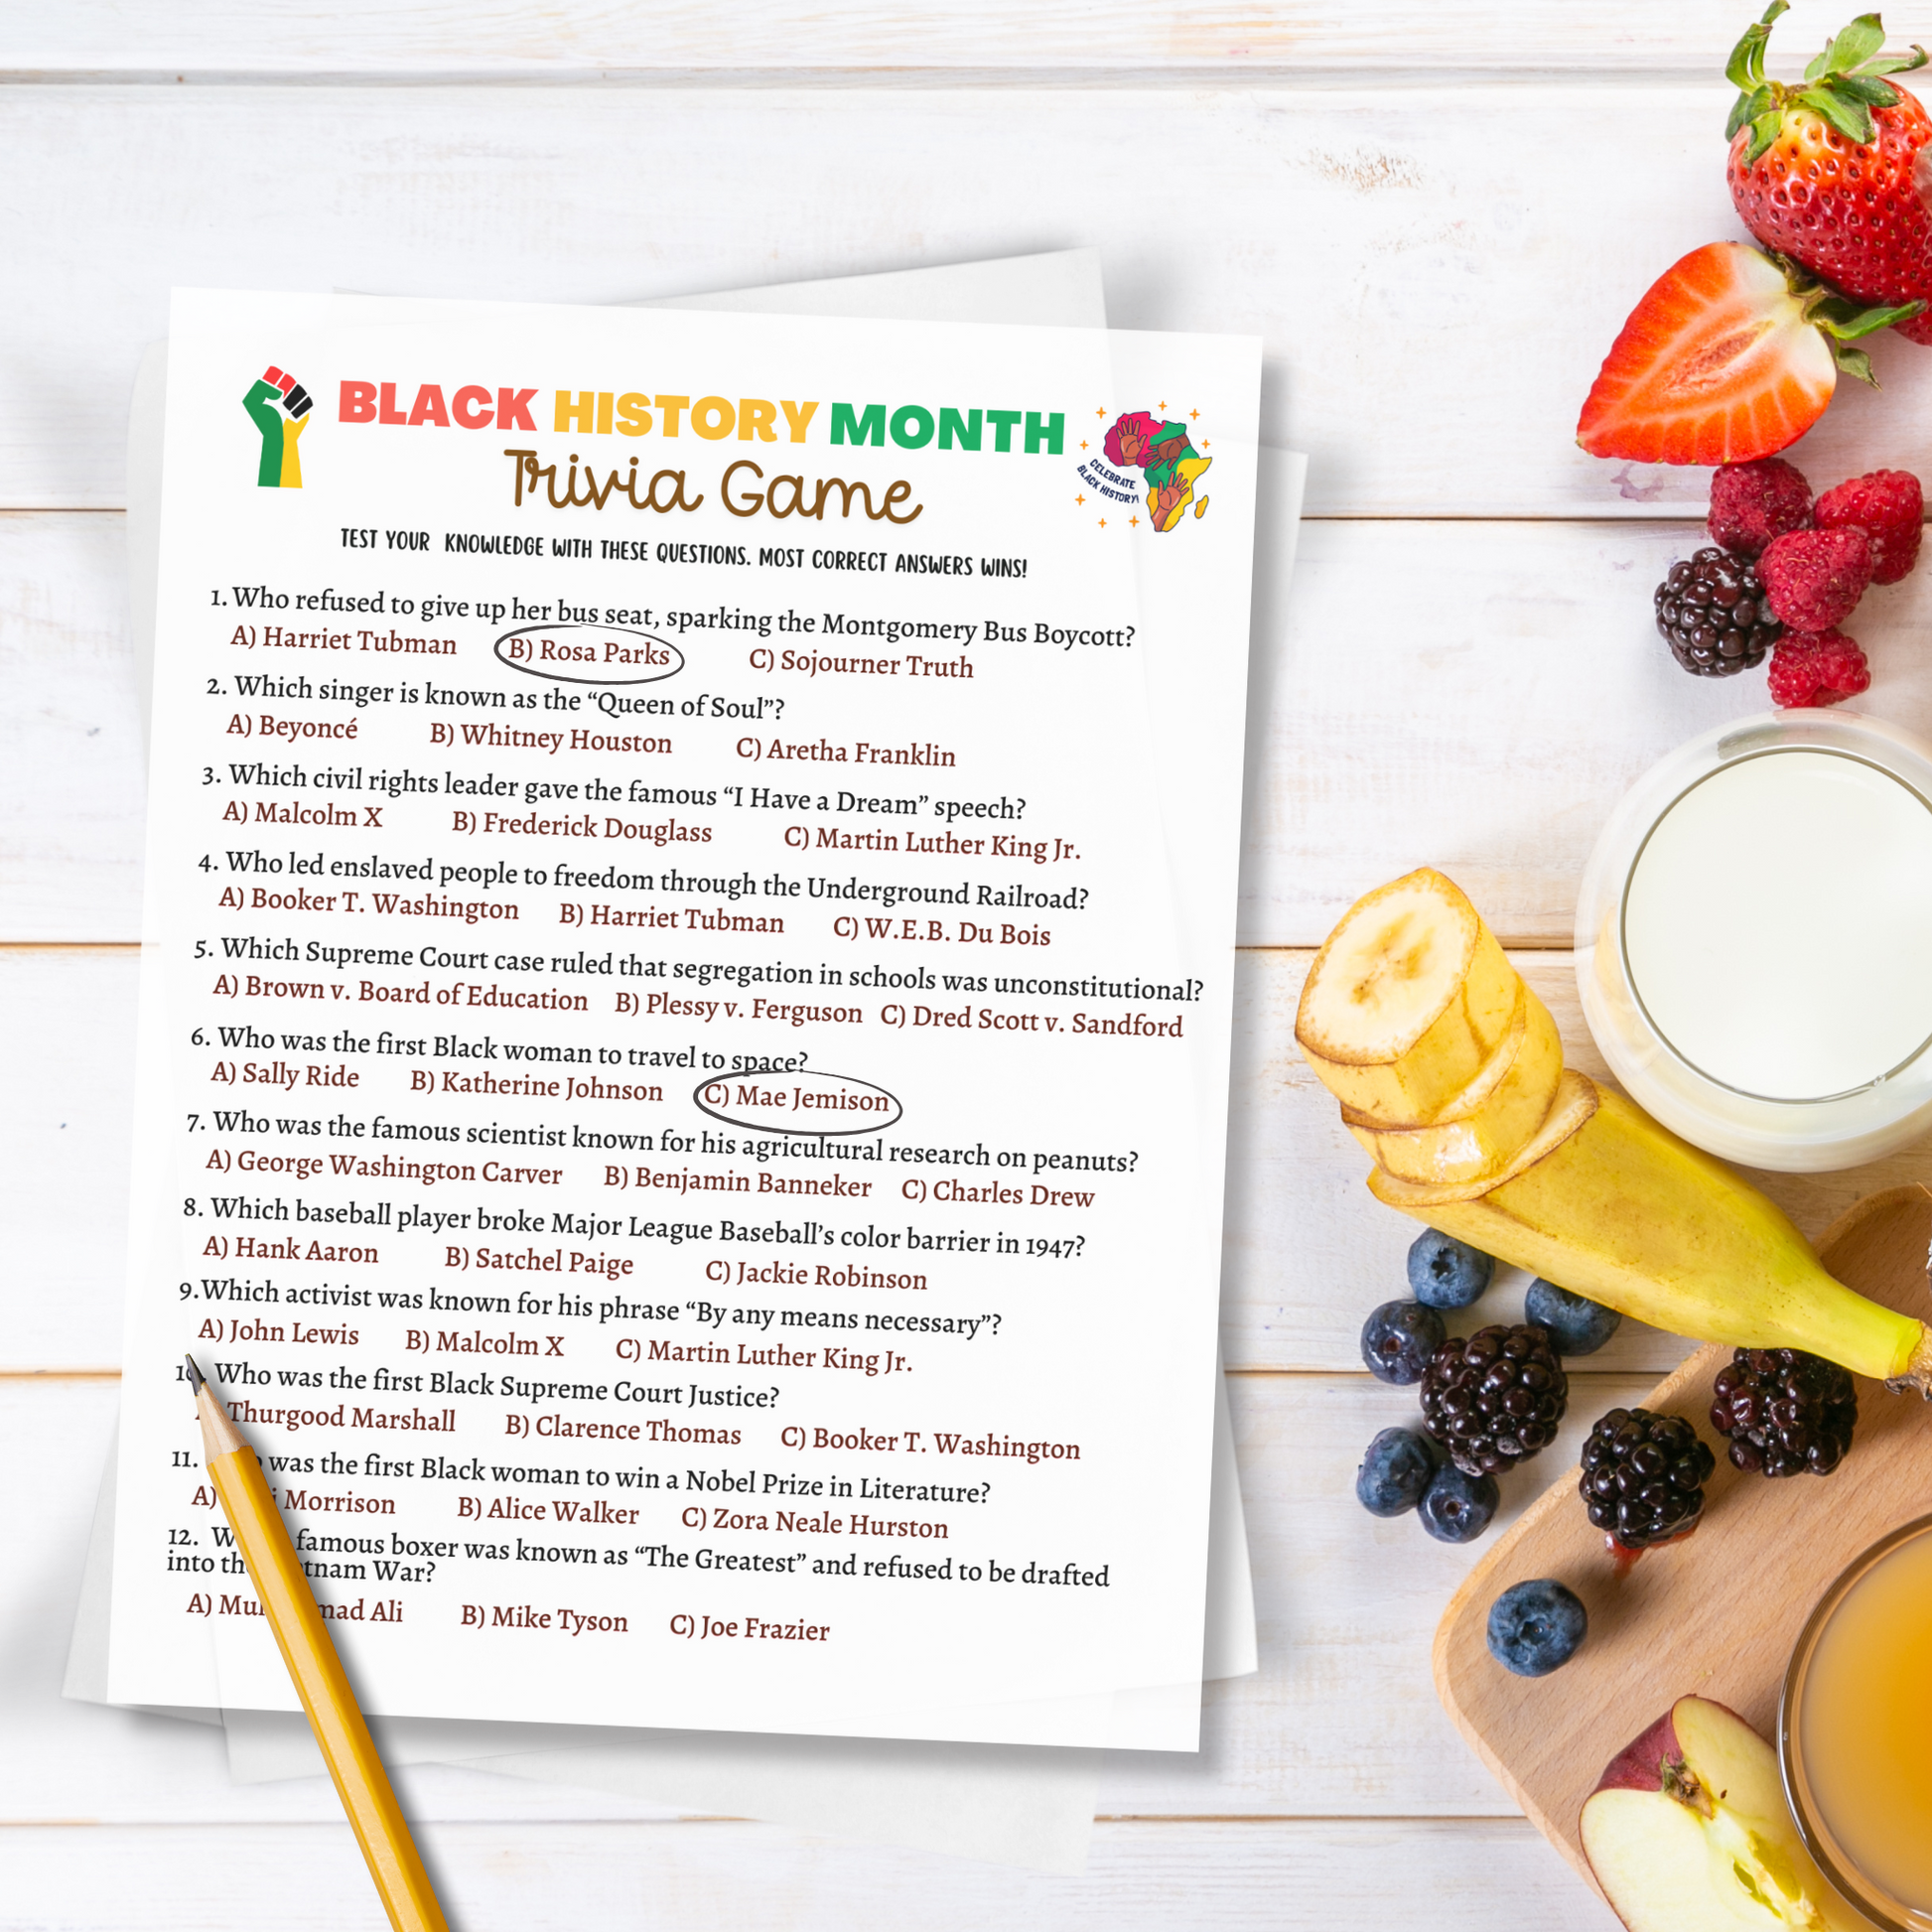 BLACK HISTORY MONTH
Trivia Game
CELEBRATE
BLACK HISTORY!
TEST YOUR KNOWLEDGE WITH THESE QUESTIONS. MOST CORRECT ANSWERS WINS!
1. Who refused to give up her bus seat, sparking the Montgomery Bus Boycott?
A) Harriet Tubman B) Rosa Parks C) Sojourner Truth
2. Which singer is known as the “Queen of Soul”?
A) Beyoncé B) Whitney Houston C) Aretha Franklin
3. Which civil rights leader gave the famous “I Have a Dream” speech?
A) Malcolm X B) Frederick Douglass C) Martin Luther King Jr.
4. Who led enslaved people to freedom through the Underground Railroad?
A) Booker T. Washington B) Harriet Tubman C) W.E.B. Du Bois
5. Which Supreme Court case ruled that segregation in schools was unconstitutional?
A) Brown v. Board of Education B) Plessy v. Ferguson C) Dred Scott v. Sandford
6. Who was the first Black woman to travel to space?
A) Sally Ride B) Katherine Johnson C) Mae Jemison
7. Who was the famous scientist known for his agricultural research on peanuts?
A) George Washington Carver B) Benjamin Banneker C) Charles Drew
8. Which baseball player broke Major League Baseball’s color barrier in 1947?
A) Hank Aaron B) Satchel Paige C) Jackie Robinson
9.Which activist was known for his phrase “By any means necessary”?
A) John Lewis B) Malcolm X C) Martin Luther King Jr.
10. Who was the first Black Supreme Court Justice?
Thurgood Marshall B) Clarence Thomas C) Booker T. Washington
11. was the first Black woman to win a Nobel Prize in Literature?
A) Morrison B) Alice Walker C) Zora Neale Hurston
12. famous boxer was known as “The Greatest” and refused to be drafted
into War?
A) Ali B) Mike Tyson C) Joe Frazier